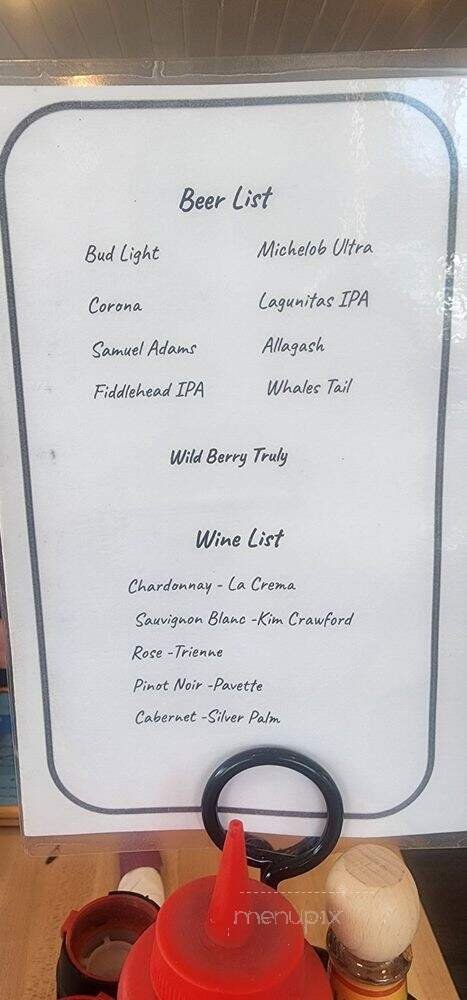 Beer List
Bud Light Michelob Ultra
Corona Lagunitas IPA
Samuel Adams Allagash
Fiddlehead IPA Whales Tail
Wild Berry Truly
Wine List
Chardonnay - La Crema
Sauvignon Blanc -Kim Crawford
Rose -Trienne
Pinot Noir -Pavette
Cabernet -Silver Palm
menupix